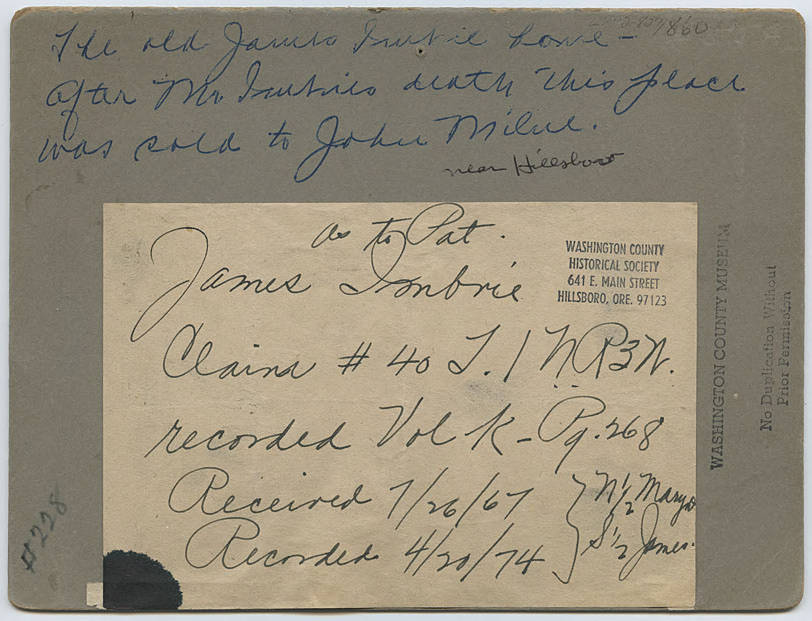 860
The old James Imbrie home -
after Mr. Imbries death this place
was sold to John Milne.
near Hillsboro
As to Pat.
James Imbrie
WASHINGTON COUNTY
HISTORICAL SOCIETY
641 E. MAIN STREET
HILLSBORO, ORE. 97123
Claim # 40 T. 1 N R3W.
recorded Vol K - Pg. 268
Received 7/26/67 } N 1/2 Mary
Recorded 4/20/74 } S 1/2 James.
#228
WASHINGTON COUNTY MUSEUM
No Duplication Without
Prior Permission